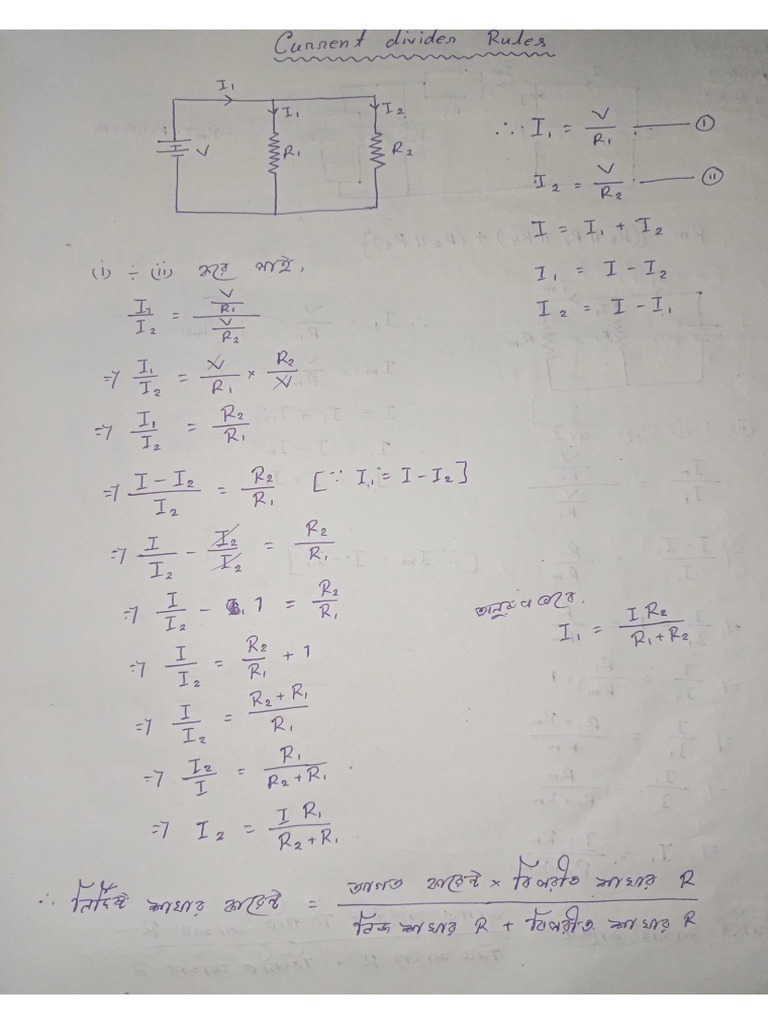 Current divider Rules
I₁
I₁
I₂
V
R₁
R₂
∴ I₁ = V/R₁ —— (i)
I₂ = V/R₂ —— (ii)
I = I₁ + I₂
I₁ = I - I₂
I₂ = I - I₁
(i) ÷ (ii) করে পাই,
I₁/I₂ = (V/R₁)/(V/R₂)
⇒ I₁/I₂ = V/R₁ × R₂/V
⇒ I₁/I₂ = R₂/R₁
⇒ (I - I₂)/I₂ = R₂/R₁ [∵ I₁ = I - I₂]
⇒ I/I₂ - I₂/I₂ = R₂/R₁
⇒ I/I₂ - 1 = R₂/R₁
⇒ I/I₂ = R₂/R₁ + 1
⇒ I/I₂ = (R₂ + R₁)/R₁
⇒ I₂/I = R₁/(R₂ + R₁)
⇒ I₂ = I R₁/(R₂ + R₁)
অনুরূপভাবে,
I₁ = I R₂/(R₁ + R₂)
∴ নির্দিষ্ট শাখার কারেন্ট = (আগত কারেন্ট × বিপরীত শাখার R)/(নিজ শাখার R + বিপরীত শাখার R)